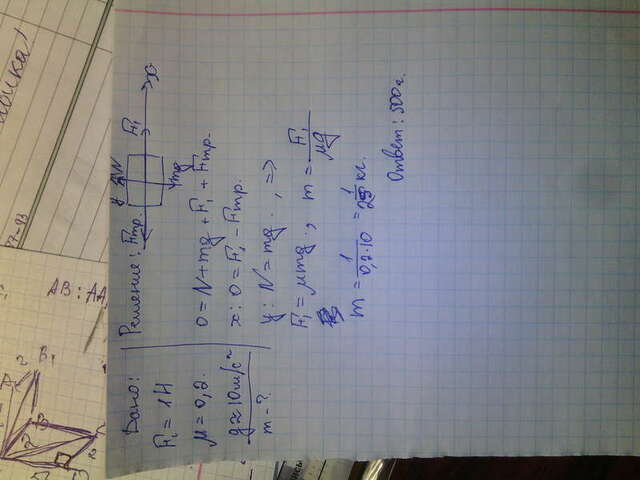 Дано:
F₁ = 1Н
μ = 0,2.
g ≈ 10 м/с²
m - ?
Решение:
Fтр.
N
y
F₁
x
mg
0 = N + mg + F₁ + Fтр.
x: 0 = F₁ - Fтр.
y: N = mg. , =>
F₁ = μmg ., m = F₁/μg
m = 1/0,2·10 = 1/2 кг.
Ответ: 500г.
AB : AA₁
B₁